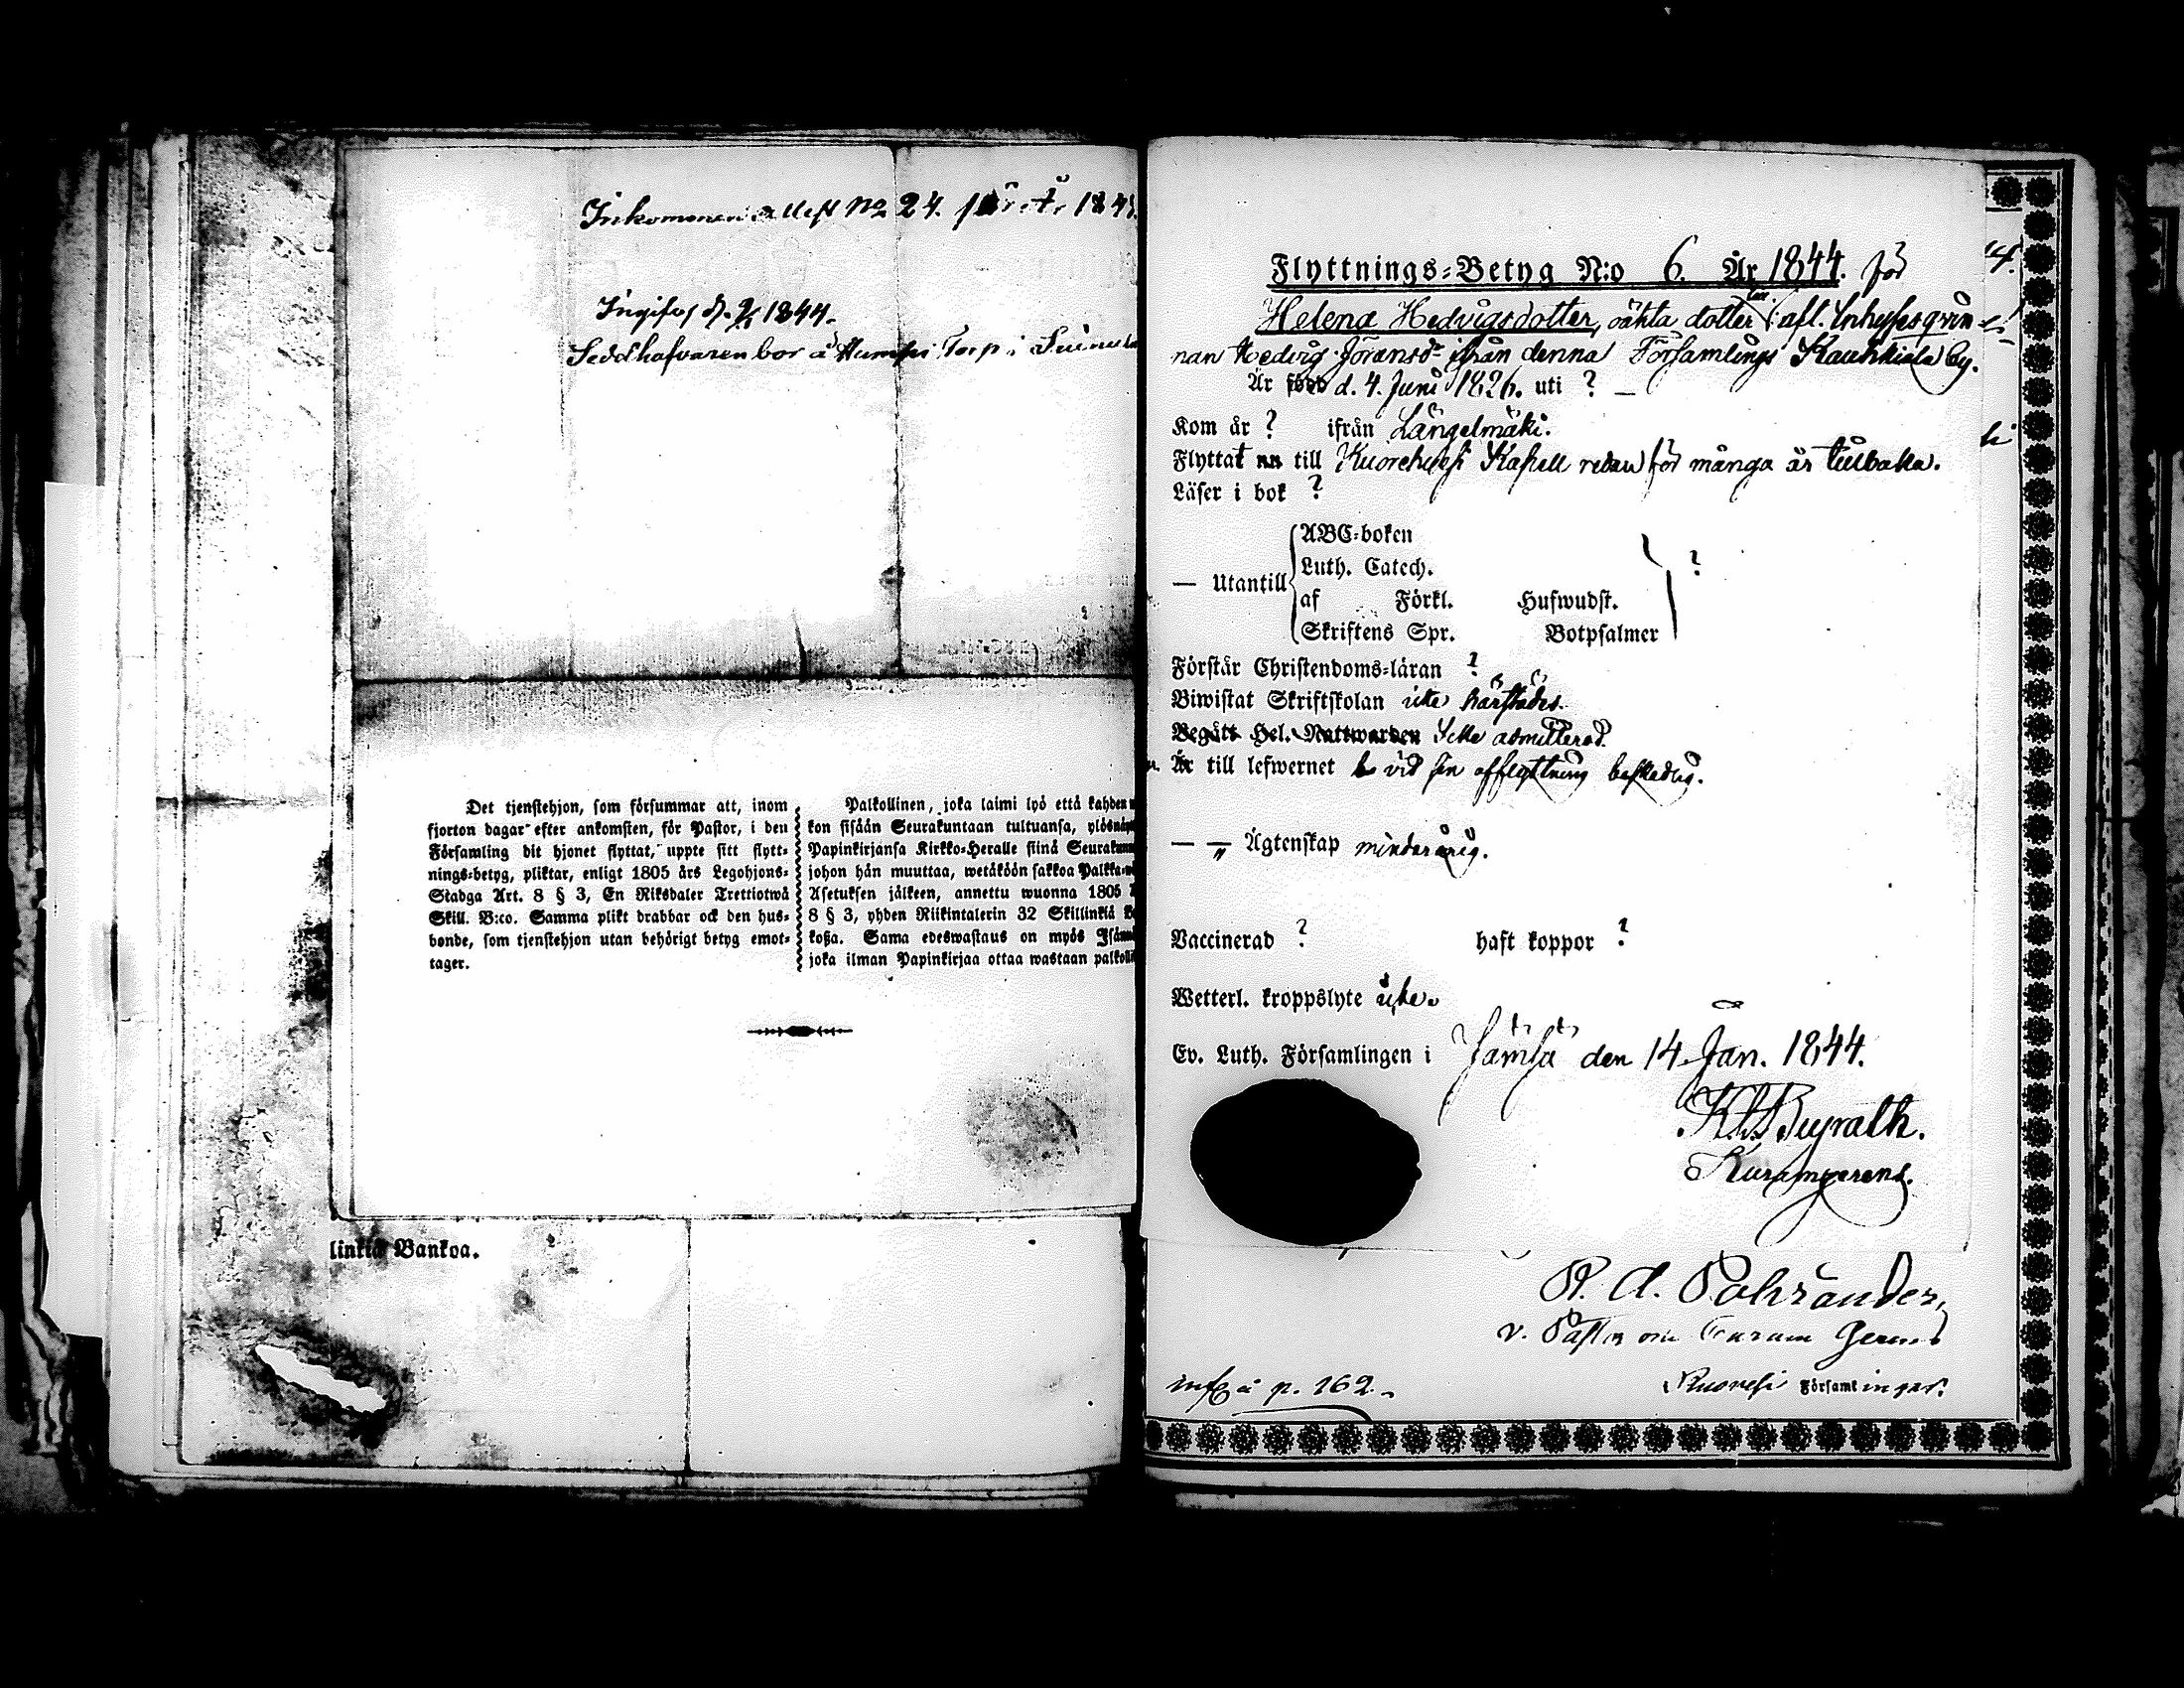 Inkommen attest No 24. för År 184
Ingifv. d. 9/6 1844.
Seddhafvaren bor å Humppi Torp i Suinula
Det tjenstehjon, som försummar att, inom
fjorton dagar efter ankomsten, för Pastor, i den
Församling dit hjonet flyttat, uppte sitt flytt-
nings-betyg, pliktar, enligt 1805 års Legohjons-
Stadga Art. 8 § 3, En Riksdaler Trettiotwå
Skill. B:co. Samma plikt drabbar ock den hus-
bonde, som tjenstehjon utan behörigt betyg emot-
tager.
Palkollinen, joka laimi lyö että kahden
kon sisään Seurakuntaan tultuansa, ylösnäyt
Papinkirjansa Kirkko-Heralle siinä Seurakun
johon hän muuttaa, wetäköön sakkoa Palkka-
Asetuksen jälkeen, annettu wuonna 1805
8 § 3, yhden Riikintalerin 32 Skillinkiä
koßa. Sama edeswastaus on myös Isän
joka ilman Papinkirjaa ottaa wastaan palkolli
linkiä Bankoa.
Flyttnings-Betyg N:o 6. År 1844. för
Helena Hedvigsdotter, oäkta dotter af afl. Inhyses qvin
nan Hedvig Joransdr ifrån denna Församlings Kauhkiala by.
Är född d. 4. Juni 1826. uti ? —
Kom år ? ifrån Längelmäki.
Flyttat nu till Kuorehvesi Kapell redan för många år tillbaka.
Läser i bok ?
— Utantill
ABC-boken
Luth. Catech.
af Förkl. Hufwudst.
Skriftens Spr. Botpsalmer
?
Förstår Christendoms-läran ?
Biwistat Skriftskolan icke härstädes.
Begått Hel. Nattwarden Icke admitterad.
Är till lefwernet vid sin afflyttning beskedlig.
— „ Ägtenskap minderårig.
Vaccinerad ? haft koppor ?
Wetterl. kroppslyte icke.
Ev. Luth. Församlingen i Jämsä den 14 Jan. 1844.
K. A. Bugrath.
Kuramgerens.
R. A. Pahrander,
v. Pastor och Curam Gerens
infö å p. 162.
Ruovesi Församlingar.